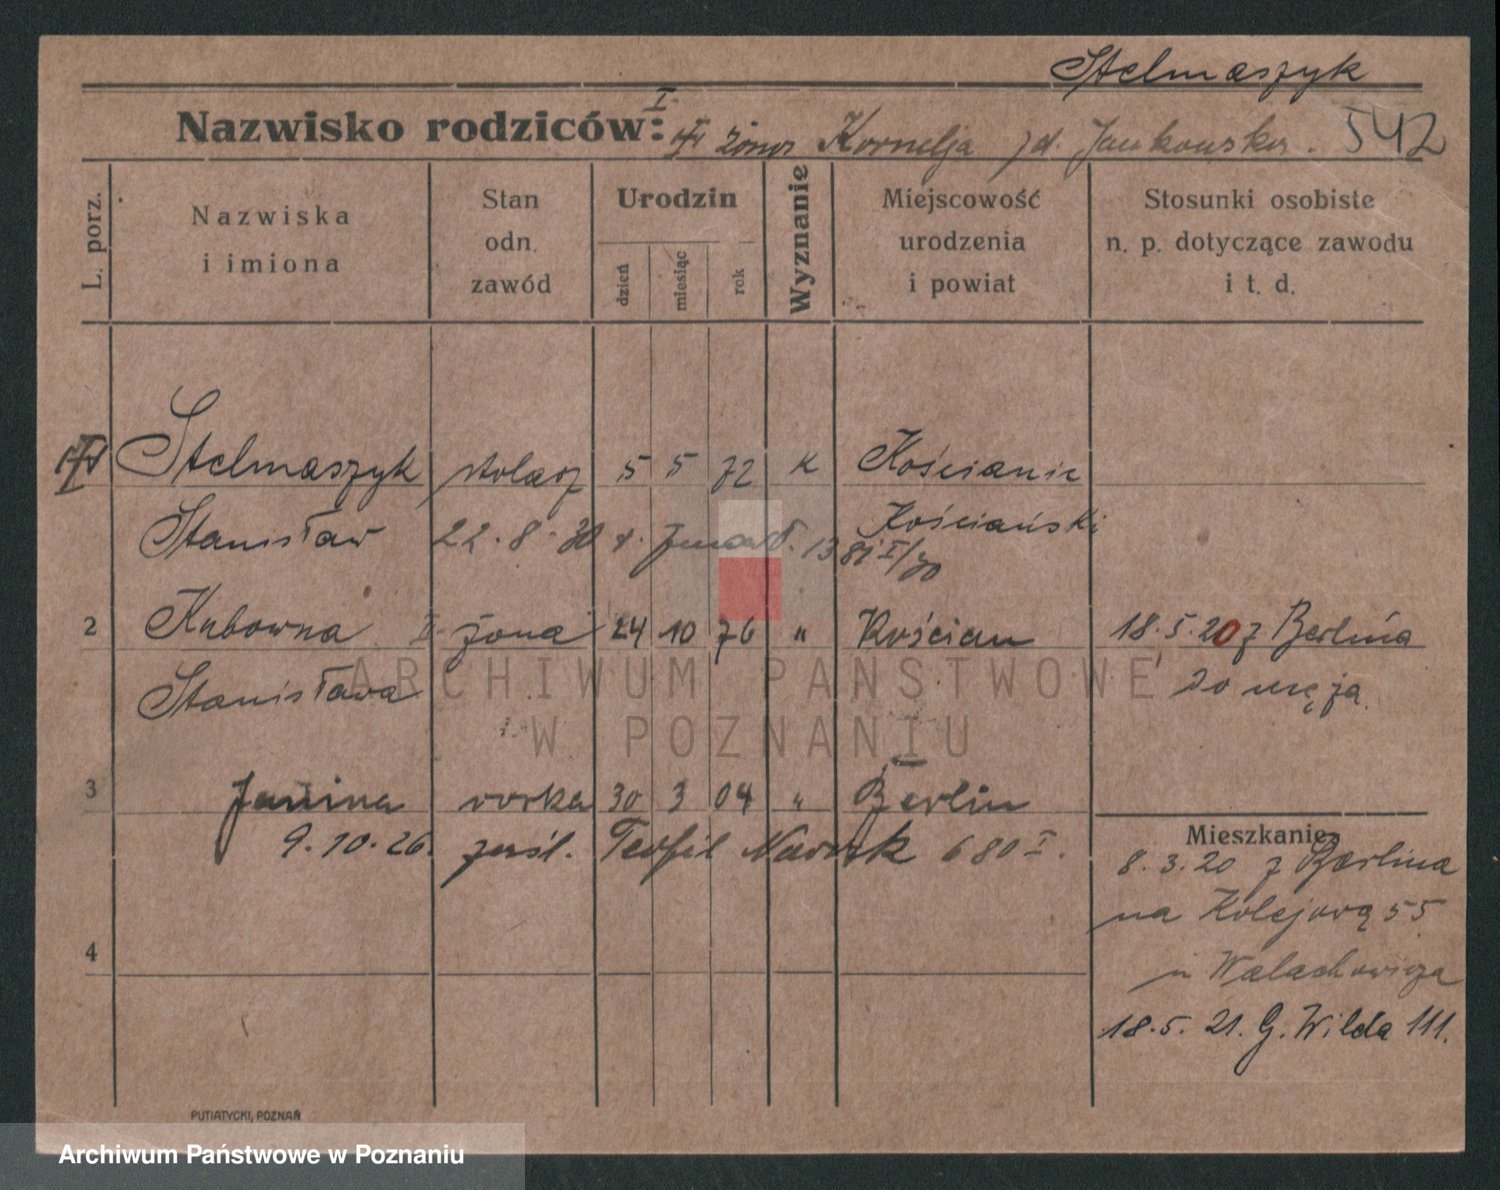 Stelmaszyk
Nazwisko rodziców: I. żona Kornelja zd. Jankowska. 542
L. porz.
Nazwiska i imiona
Stan odn. zawód
Urodzin
dzień
miesiąc
rok
Wyznanie
Miejscowość urodzenia i powiat
Stosunki osobiste n. p. dotyczące zawodu i t. d.
Stelmaszyk stolarz 5 5 72 k Kościanie
Stanisław 22.8.30 Kościański
1381 I/30
2 Kubowna II żona 24 10 76 " Kościan 18.5.20 z Berlina
Stanisława do męża
3 Janina córka 30 3 04 " Berlin
9.10.26. zaśl. Teofil 680 I.
Mieszkanie
8.3.20 z Berlina
na Kolejową 55
u Walachowicza
4
18.5.21. G. Wilda 111.
PUTIATYCKI, POZNAŃ
ARCHIWUM PAŃSTWOWE
W POZNANIU
Archiwum Państwowe w Poznaniu